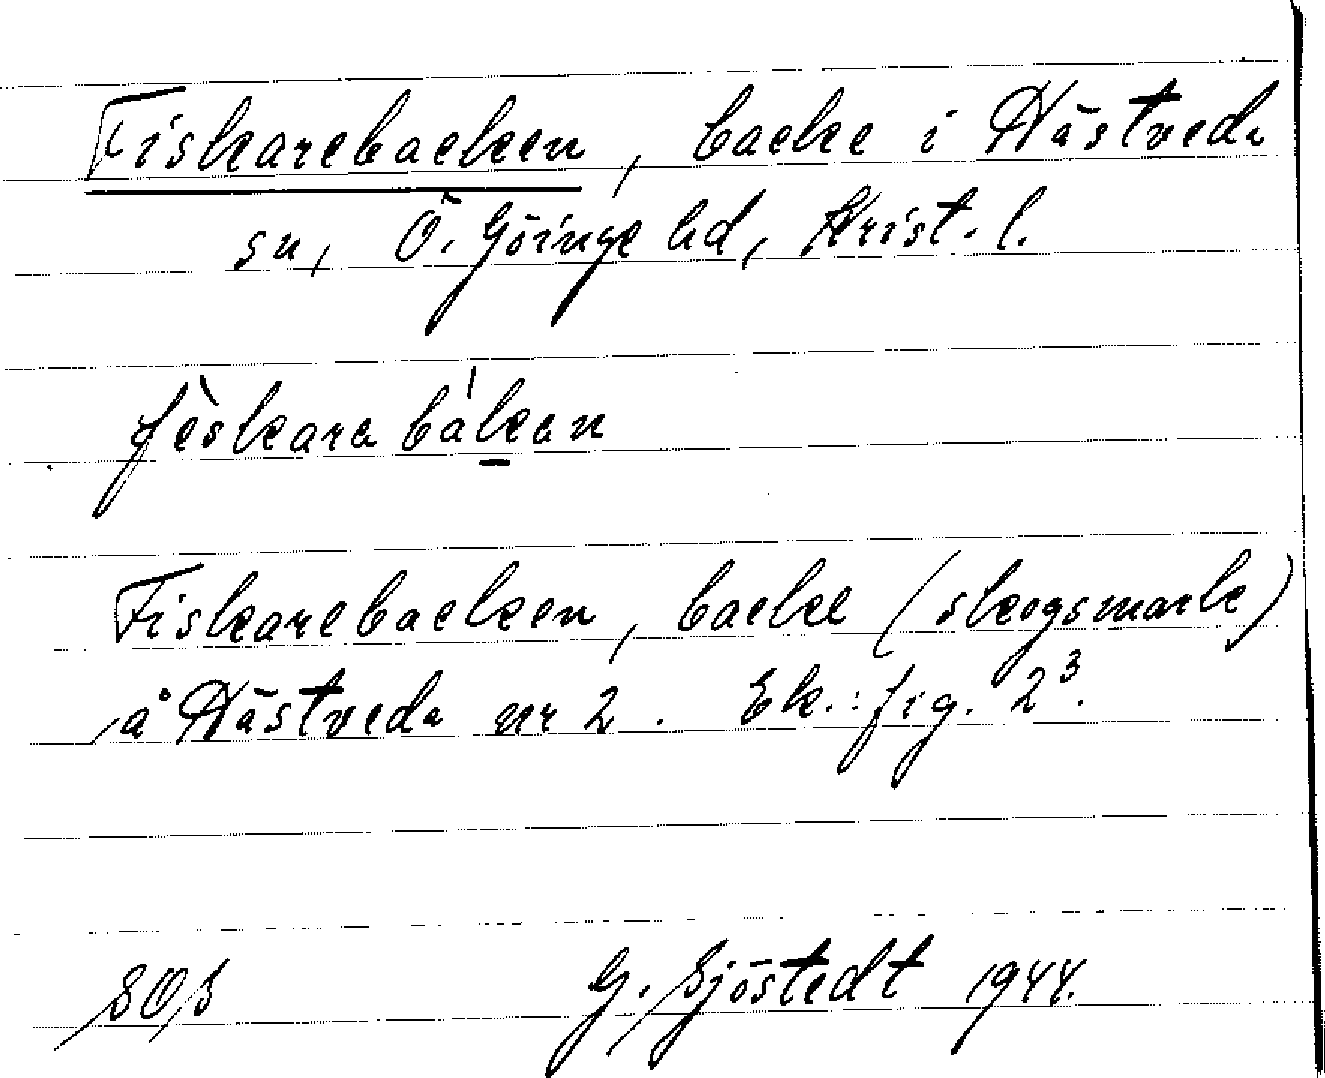 Fiskarebacken, backe i Hästveda
sn, Ö. Göinge hd, Krist. l.
fèskara bákan
Fiskarebacken, backe (skogsmark)
å Hästveda nr 2. Ek.: fig. 2³.
SOS G. Sjöstedt 1944.